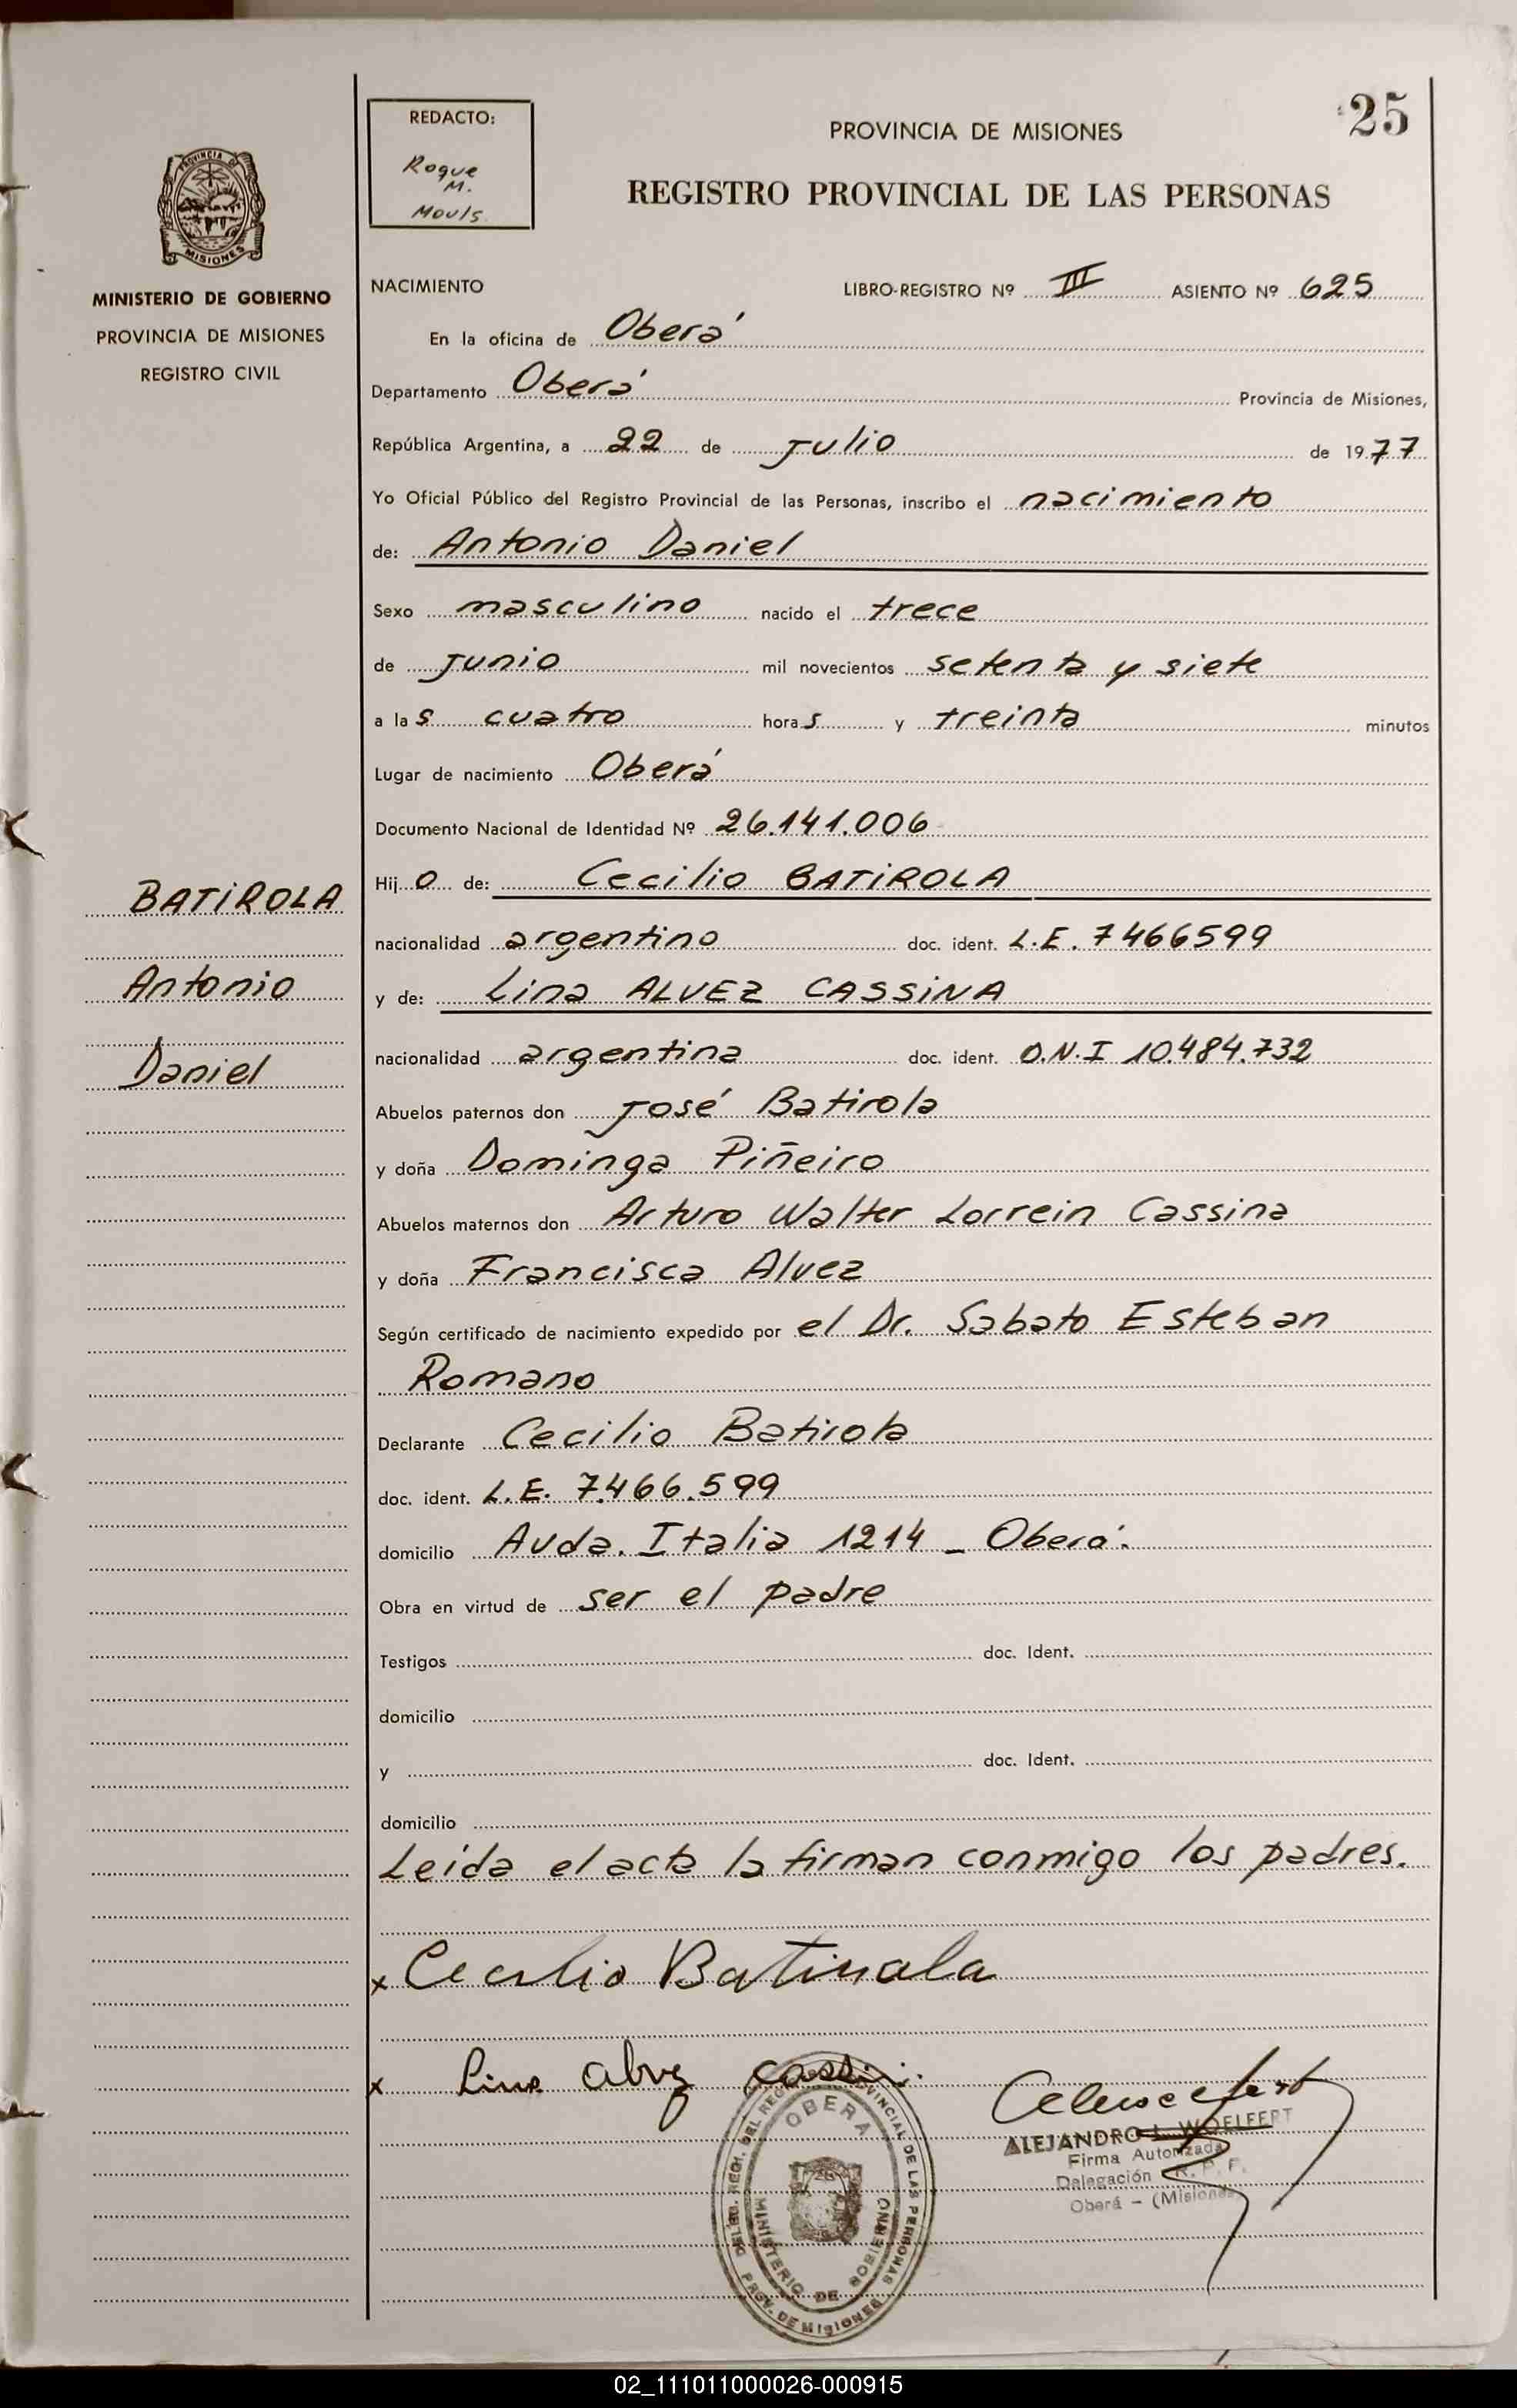 25
REDACTO:
Roque
M.
Mouls
PROVINCIA DE MISIONES
REGISTRO PROVINCIAL DE LAS PERSONAS
PROVINCIA DE
MISIONES
MINISTERIO DE GOBIERNO
PROVINCIA DE MISIONES
REGISTRO CIVIL
NACIMIENTO LIBRO-REGISTRO Nº III ASIENTO Nº 625
En la oficina de Oberá
Departamento Oberá Provincia de Misiones,
República Argentina, a 22 de Julio de 1977
Yo Oficial Público del Registro Provincial de las Personas, inscribo el nacimiento
de: Antonio Daniel
Sexo masculino nacido el trece
de Junio mil novecientos setenta y siete
a las cuatro horas y treinta minutos
Lugar de nacimiento Oberá
Documento Nacional de Identidad Nº 26.141.006
BATIROLA
Antonio
Daniel
Hijo de: Cecilio BATIROLA
nacionalidad argentino doc. ident. L.E. 7466599
y de: Lina ALVEZ CASSINA
nacionalidad argentina doc. ident. D.N.I 10.484.732
Abuelos paternos don José Batirola
y doña Dominga Piñeiro
Abuelos maternos don Arturo Walter Lorrein Cassina
y doña Francisca Alvez
Según certificado de nacimiento expedido por el Dr. Sabato Esteban
Romano
Declarante Cecilio Batirola
doc. ident. L.E. 7.466.599
domicilio Avda. Italia 1214 _ Oberá.
Obra en virtud de ser el padre
Testigos doc. Ident.
domicilio
y doc. Ident.
domicilio
Leida el acta la firman conmigo los padres.
x Cecilio Batirola
x Lina Alvez Cassin
ALEJANDRO L. WOELFERT
Firma Autorizada
Delegación R. P. P.
Oberá - (Misiones)
OBERA
MINISTERIO DE GOBIERNO
PROV. DE MISIONES
02_111011000026-000915